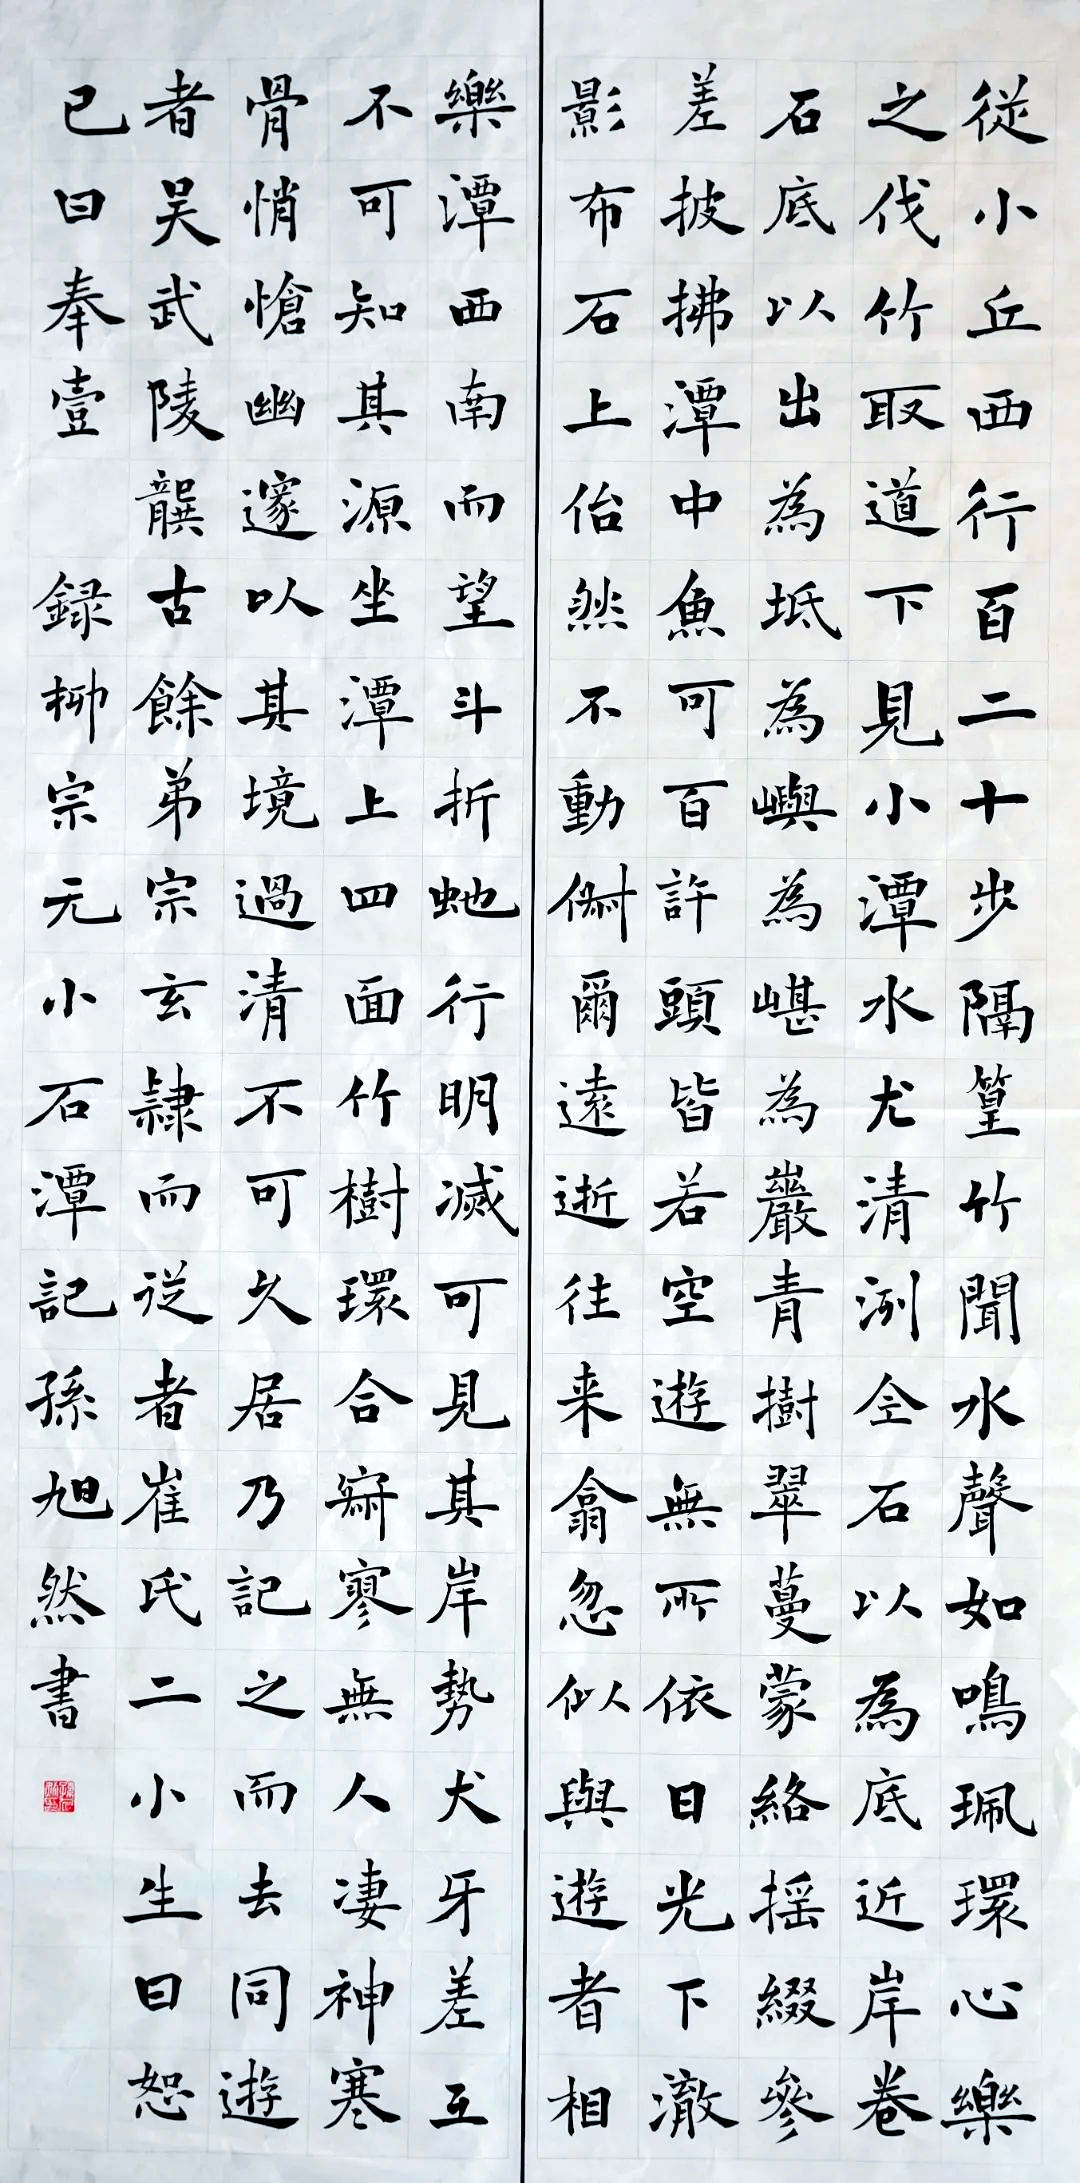 從小丘西行百二十步隔篁竹聞水聲如鳴珮環心樂
之伐竹取道下見小潭水尤清洌仝石以為底近岸卷
石底以出為坻為嶼為嵁為巖青樹翠蔓蒙絡摇綴參
差披拂潭中魚可百許頭皆若空遊無所依日光下澈
影布石上佁然不動俶爾遠逝往来翕忽似與遊者相
樂潭西南而望斗折虵行明滅可見其岸勢犬牙差互
不可知其源坐潭上四面竹樹環合寂寥無人凄神寒
骨悄愴幽邃以其境過清不可久居乃記之而去同遊
者吴武陵龔古余弟宗玄隸而從者崔氏二小生曰恕
已曰奉壹
録柳宗元小石潭記孫旭然書